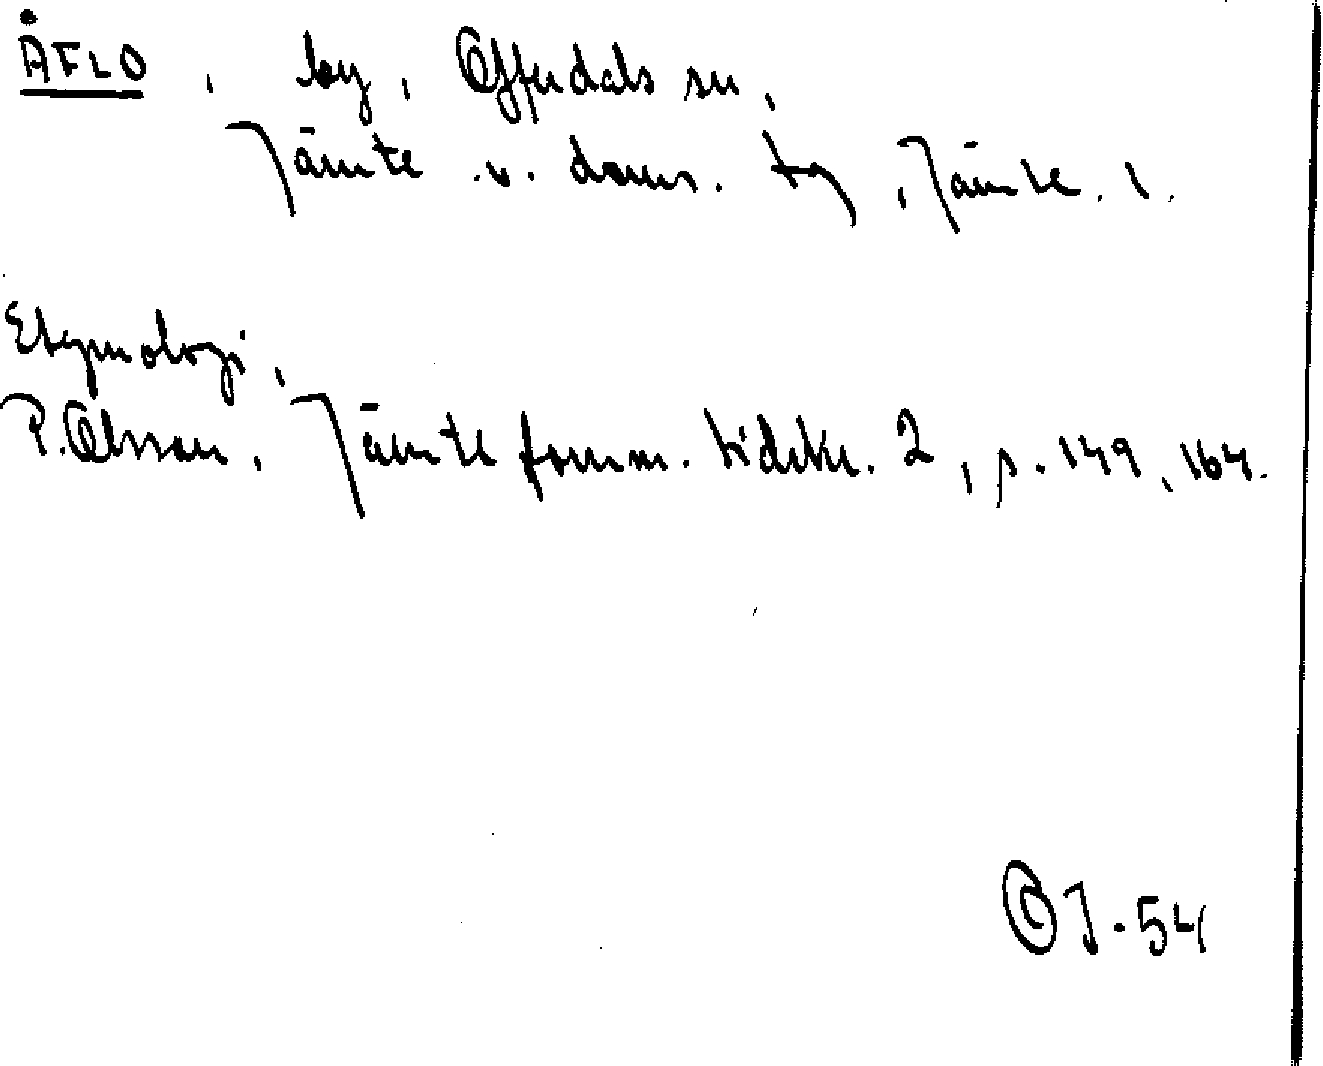 ÅFLO, by, Offerdals sn,
Jämte. v. doms. tg, Jämte. l.
Etymologi,
P. Olsson, Jämte fornm. tidskr. 2, s. 149, 164.
OJ-54